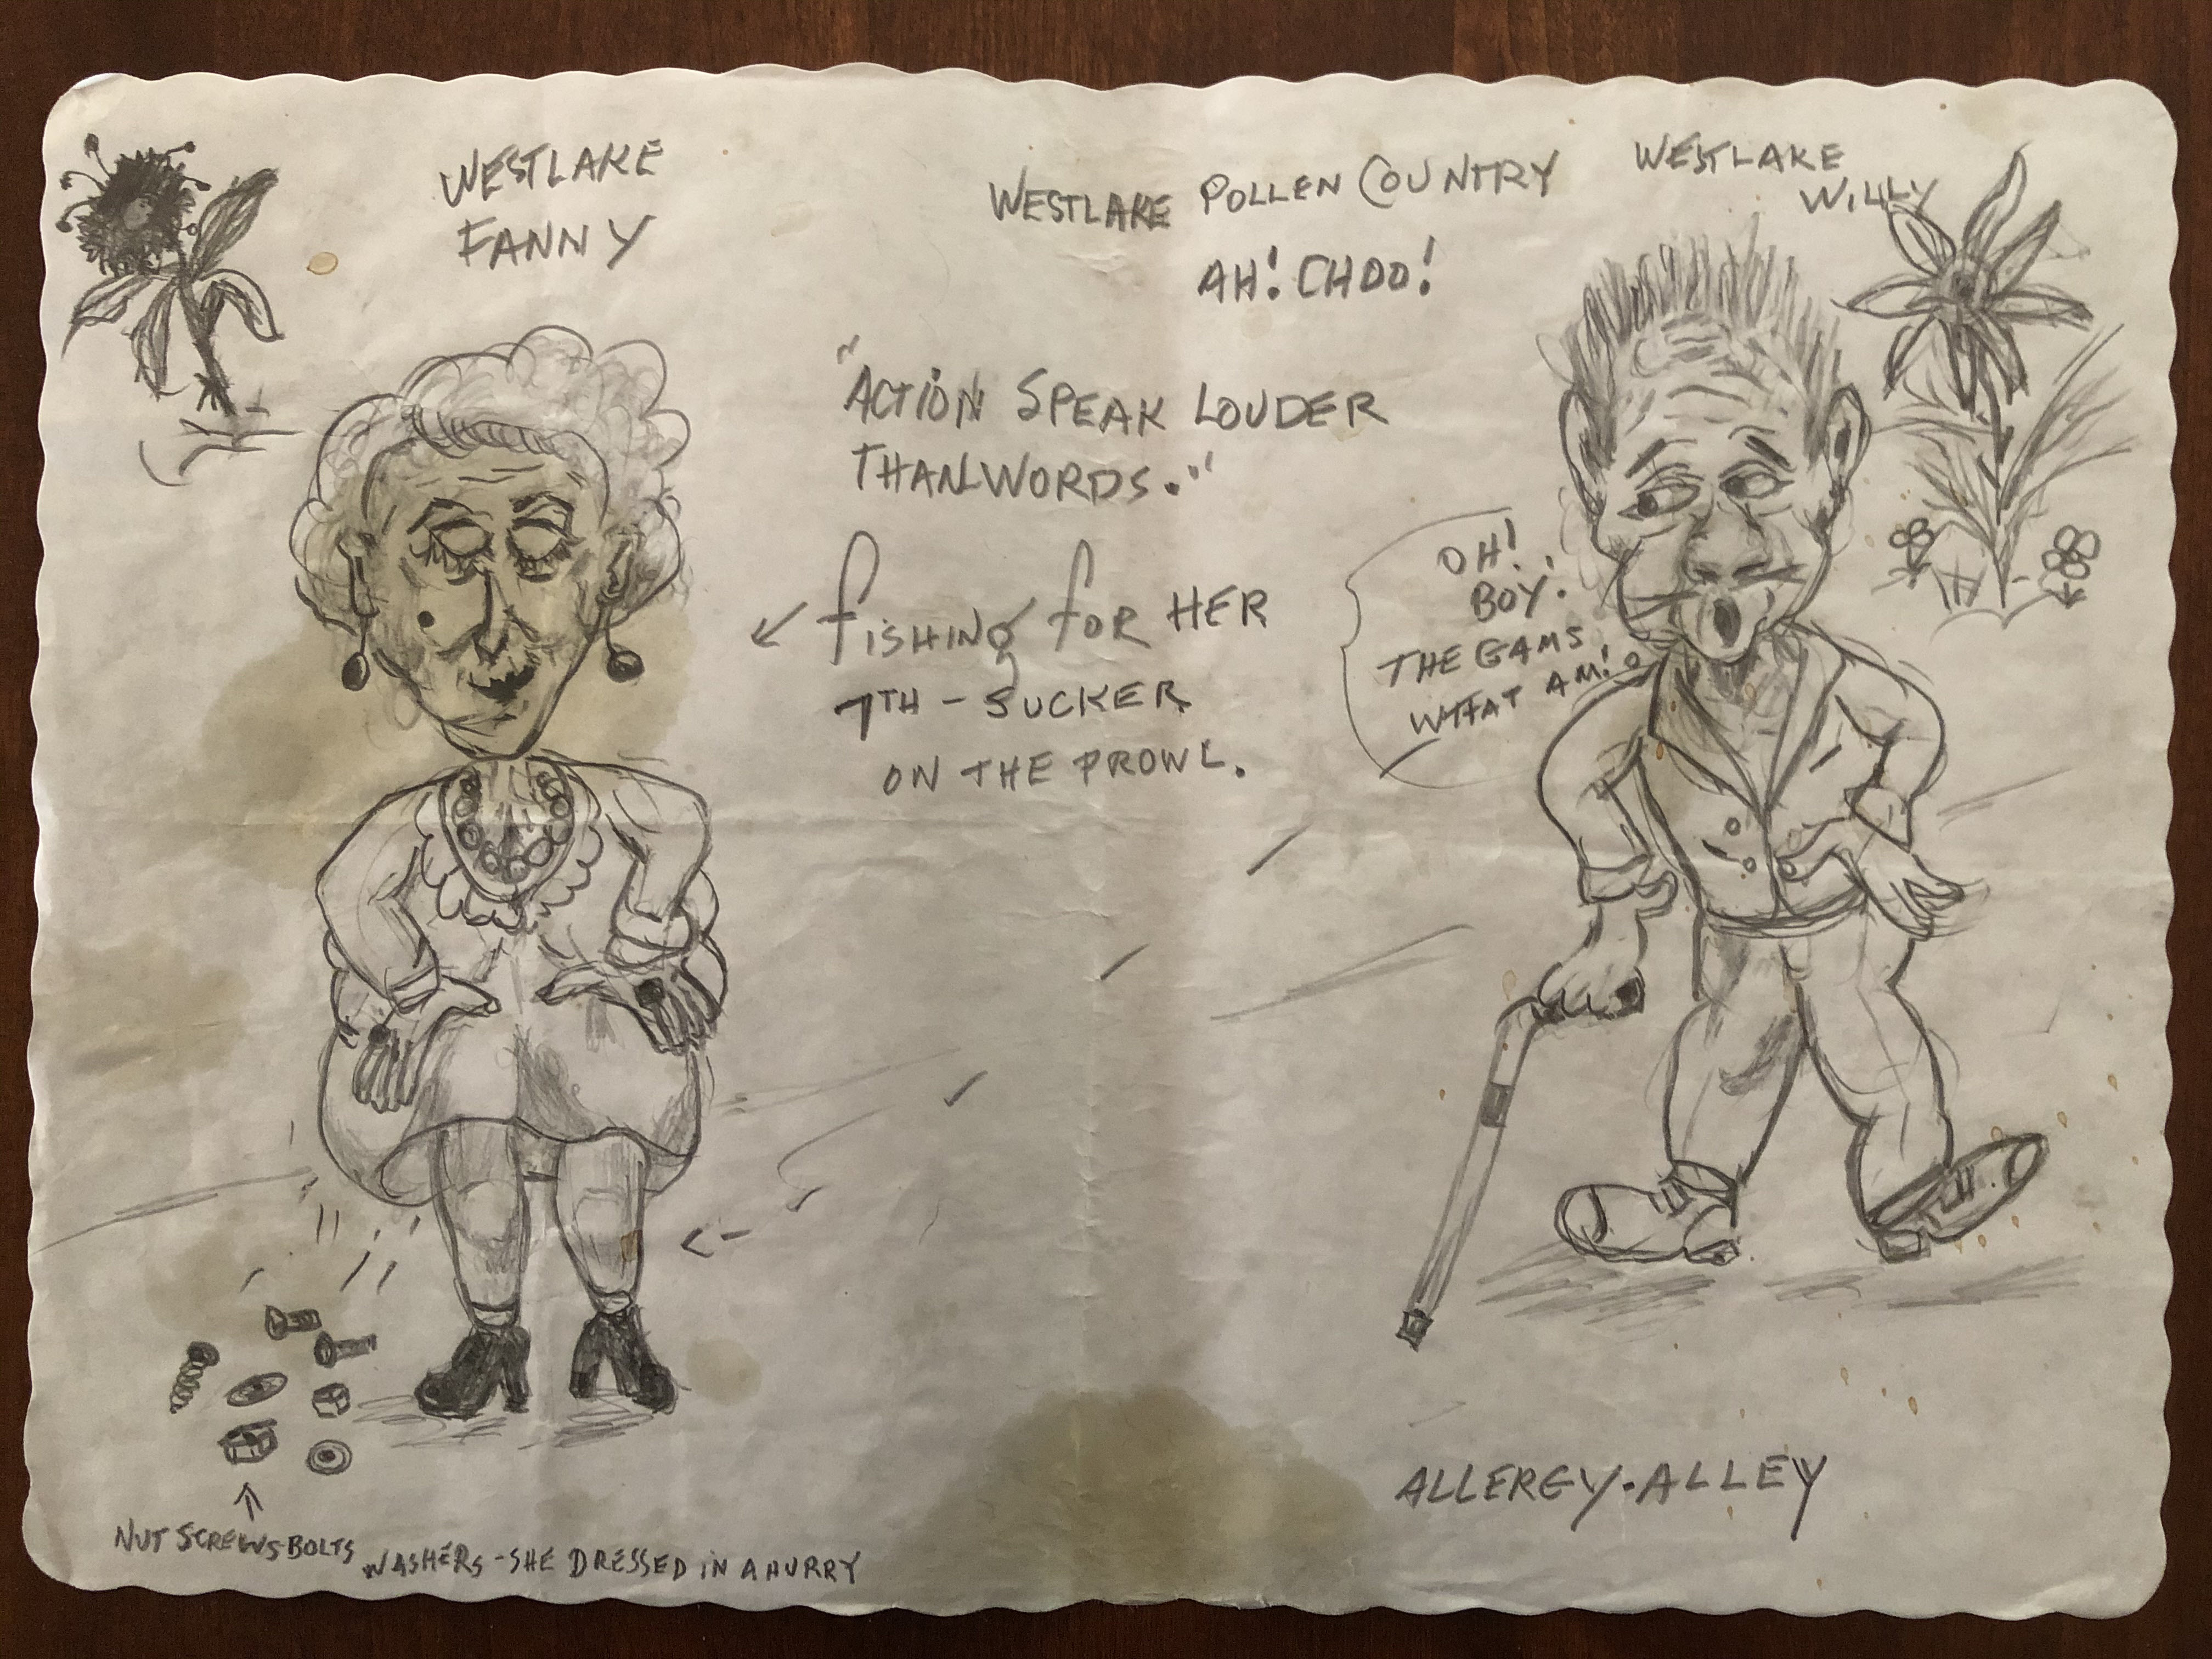 WESTLAKE
FANNY
WESTLAKE POLLEN COUNTRY
AH! CHOO!
WESTLAKE
WILLY
"ACTION SPEAK LOUDER
THAN WORDS."
← fISHING fOR HER
7TH - SUCKER
ON THE PROWL.
OH!
BOY!
THE GAMS
WHAT AM!
NUT SCREWS-BOLTS WASHERS - SHE DRESSED IN A HURRY
ALLERGY-ALLEY